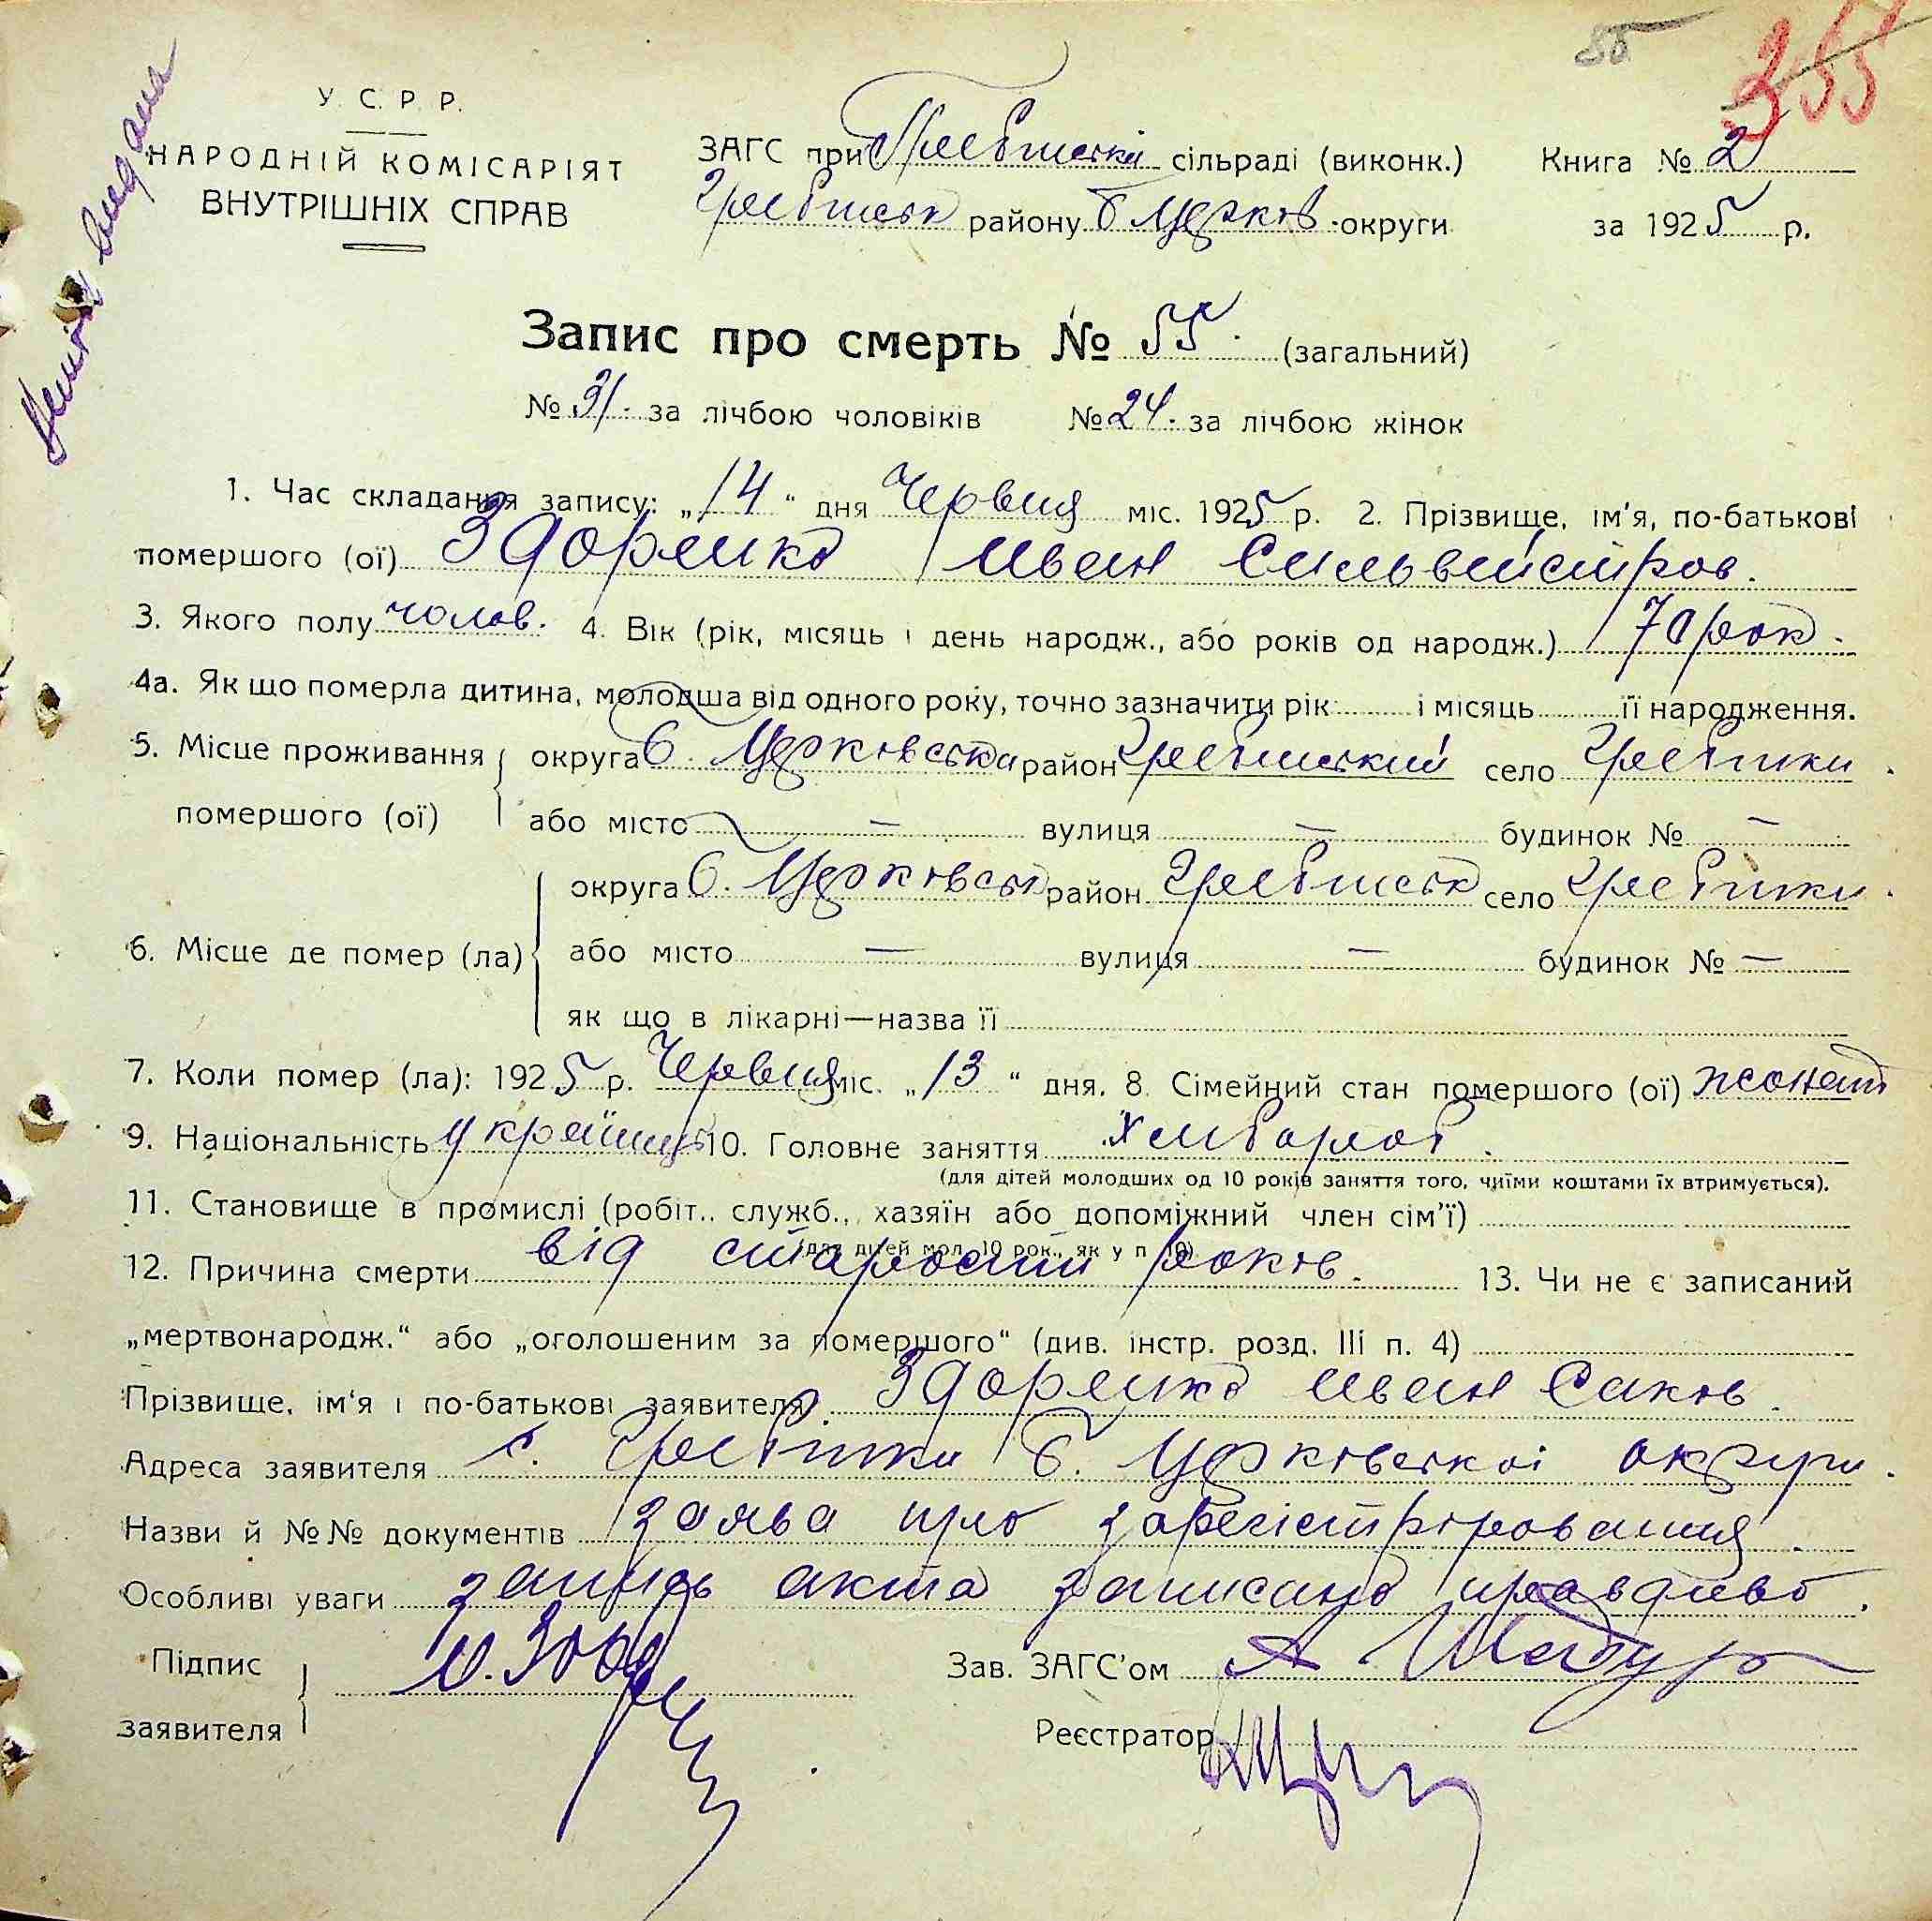 55
355
У. С. Р. Р.
НАРОДНІЙ КОМІСАРІЯТ
ВНУТРІШНІХ СПРАВ
ЗАГС при Гребінській сільраді (виконк.) Книга № 2
Гребінськ району Б Церков. округи за 1925 р.
Запис про смерть № 55. (загальний)
№ 31. за лічбою чоловіків № 24. за лічбою жінок
1. Час складання запису: „14“ дня Червня міс. 1925 р. 2. Прізвище, ім'я, по-батькові
помершого (ої) Здоренко Иван Сильвейстров.
3. Якого полу чолов. 4. Вік (рік, місяць і день народж., або років од народж.) 70 рок.
4а. Як що померла дитина, молодша від одного року, точно зазначити рік і місяць її народження.
5. Місце проживання округа Б. Церковська район Гребінський село Гребінки.
помершого (ої) або місто — вулиця — будинок № —
округа Б. Церковськ район Гребінськ село Гребінки.
6. Місце де помер (ла) або місто — вулиця — будинок № —
як що в лікарні—назва її
7. Коли помер (ла): 1925 р. Червня міс. „13“ дня. 8. Сімейний стан помершого (ої) жонат
9. Національність українець 10. Головне заняття хлібороб.
(для дітей молодших од 10 років заняття того, чиїми коштами їх втримується).
11. Становище в промислі (робіт., служб., хазяїн або допоміжний член сім'ї)
(для дітей мол. 10 рок., як у п. 10).
12. Причина смерти від старости років. 13. Чи не є записаний
„мертвонародж.“ або „оголошеним за помершого“ (див. інстр. розд. III п. 4)
Прізвище, ім'я і по-батькові заявителя Здоренко Иван Саков.
Адреса заявителя с. Гребінки Б. Церковської округи.
Назви й №№ документів заява про зарегістрірования.
Особливі уваги запись акта записано правдиво.
Підпис
заявителя
Зав. ЗАГС'ом А
Реєстратор